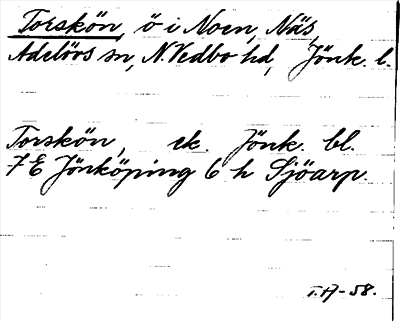 Torskön, ö i Noen, Näs,
Adelövs sn, N. Vedbo hd, Jönk. l.
Torskön, ek. Jönk. bl.
7 E Jönköping 6 h Sjöarp.
T.H-58.